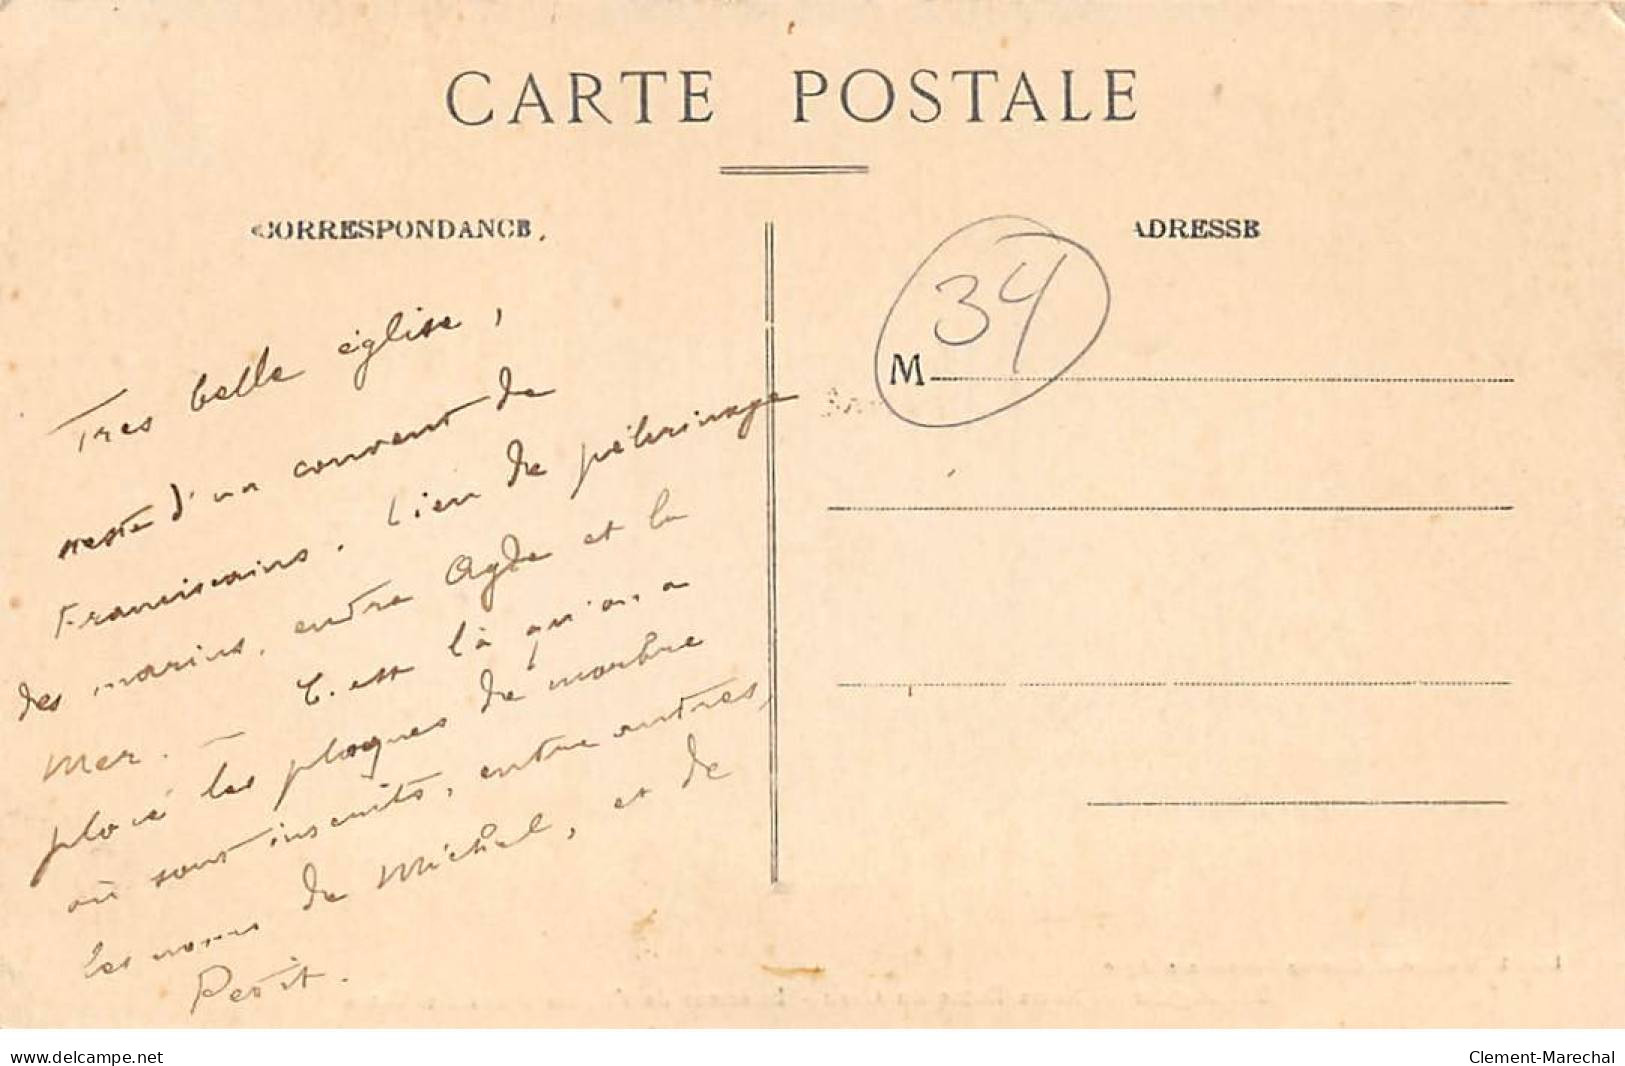 CARTE POSTALE
CORRESPONDANCE.
ADRESSE
34
M
Tres belle église,
reste d'un couvent de
Franciscains. Lieu de pélerinage
des marins, entre Agde et la
Mer. — C'est là qu'on a
placé les plaques de marbre
où sont inscrits, entre autres,
les noms de Michel, et de
Petit.
www.delcampe.net
Clement-Marechal